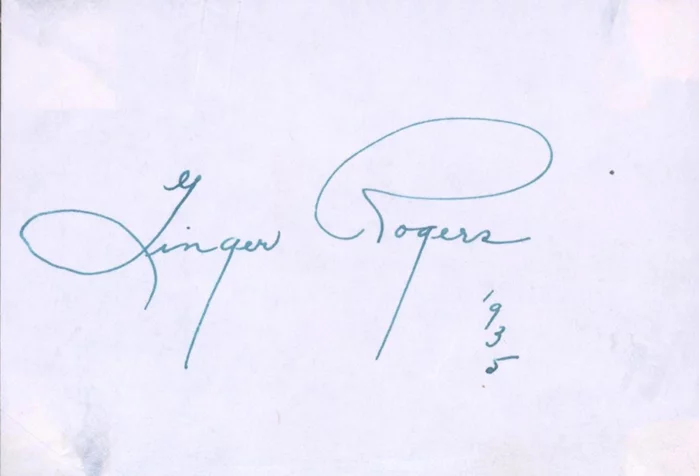 Ginger Rogers
1935